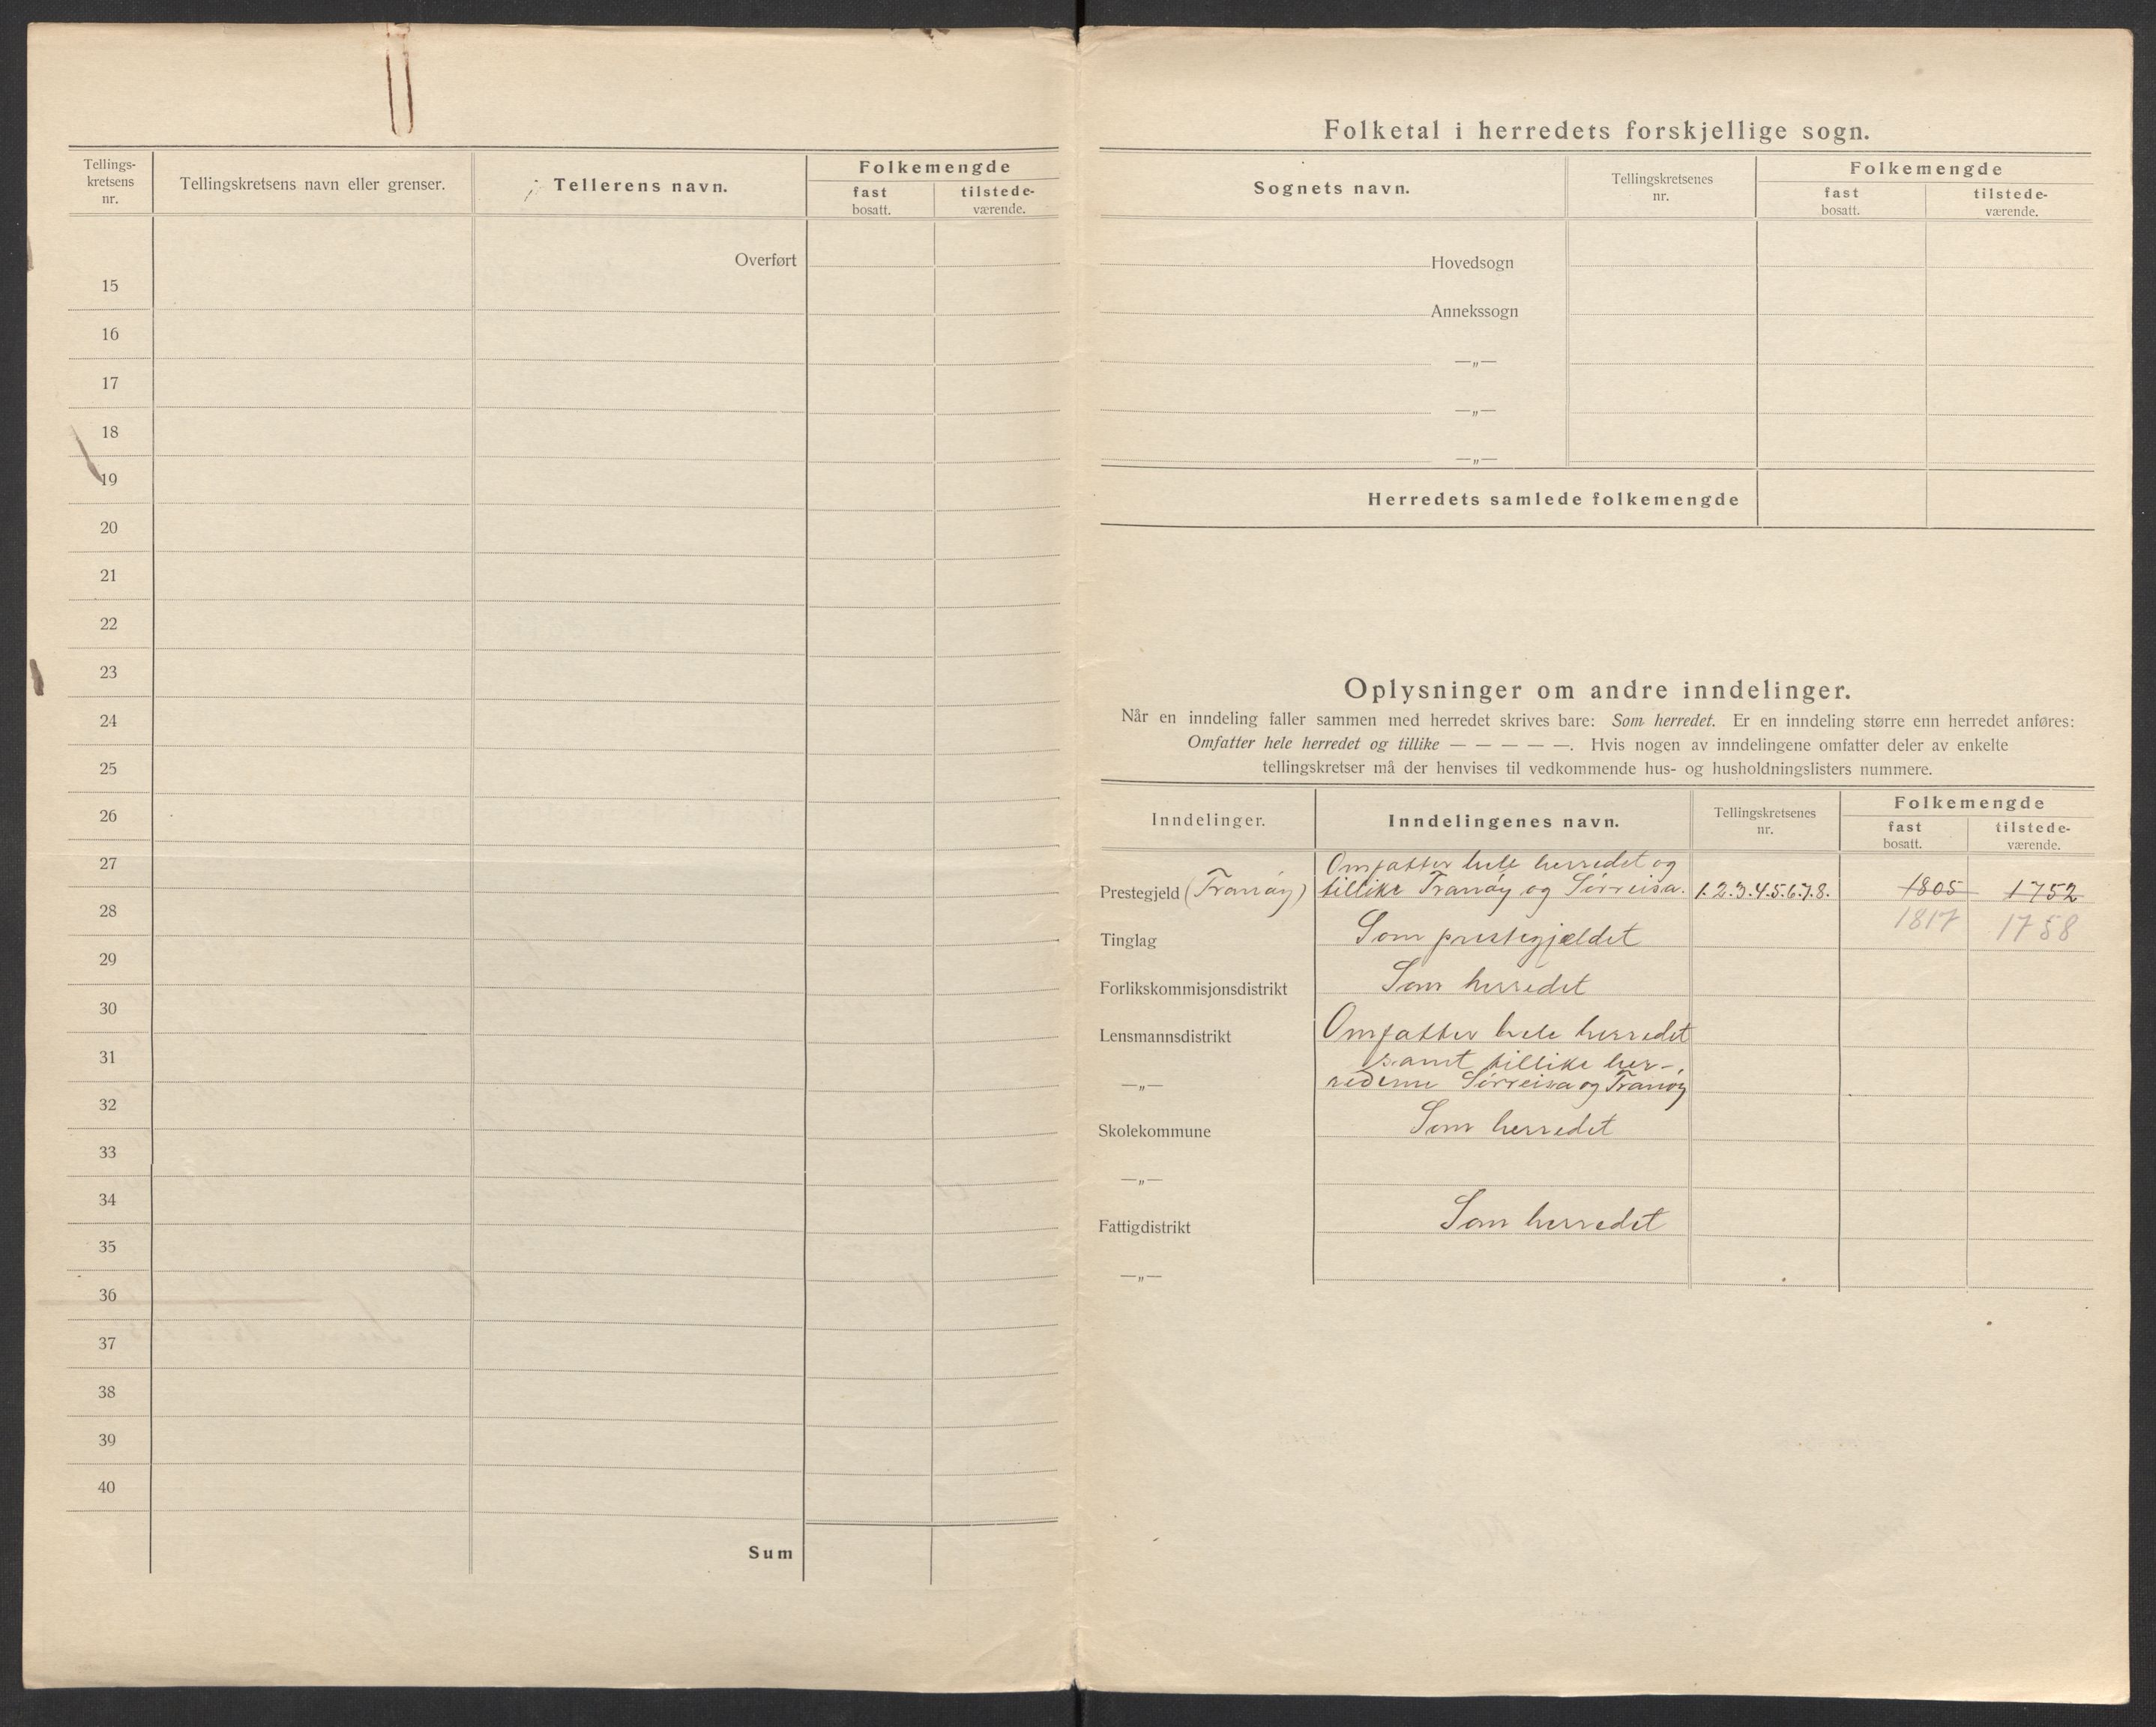 Tellings-
kretsens
nr.
Tellingskretsens navn eller grenser.
Tellerens navn.
Folkemengde
fast
bosatt.
tilstede-
værende.
Overført
15
16
17
18
19
20
21
22
23
24
25
26
27
28
29
30
31
32
33
34
35
36
37
38
39
40
Sum
Folketal i herredets forskjellige sogn.
Sognets navn.
Tellingskretsenes
nr.
Folkemengde
fast
bosatt.
tilstede-
værende.
Hovedsogn
Annekssogn
—„—
—„—
—„—
Herredets samlede folkemengde
Oplysninger om andre inndelinger.
Når en inndeling faller sammen med herredet skrives bare: Som herredet. Er en inndeling større enn herredet anføres:
Omfatter hele herredet og tillike — — — — —. Hvis nogen av inndelingene omfatter deler av enkelte
tellingskretser må der henvises til vedkommende hus- og husholdningslisters nummere.
Inndelinger.
Inndelingenes navn.
Tellingskretsenes
nr.
Folkemengde
fast
bosatt.
tilstede-
værende.
Omfatter hele herredet og
Prestegjeld (Tranøy) tillike Tranøy og Sørreisa. 1.2.3.4.5.6.7.8. 1805 1752
1817 1758
Tinglag Som prestegjældet
Forlikskommisjonsdistrikt Som herredet
Lensmannsdistrikt Omfatter hele herredet
samt tillike her-
—„— rederne Sørreisa og Tranøy
Skolekommune Som herredet
—„—
Fattigdistrikt Som herredet
—„—